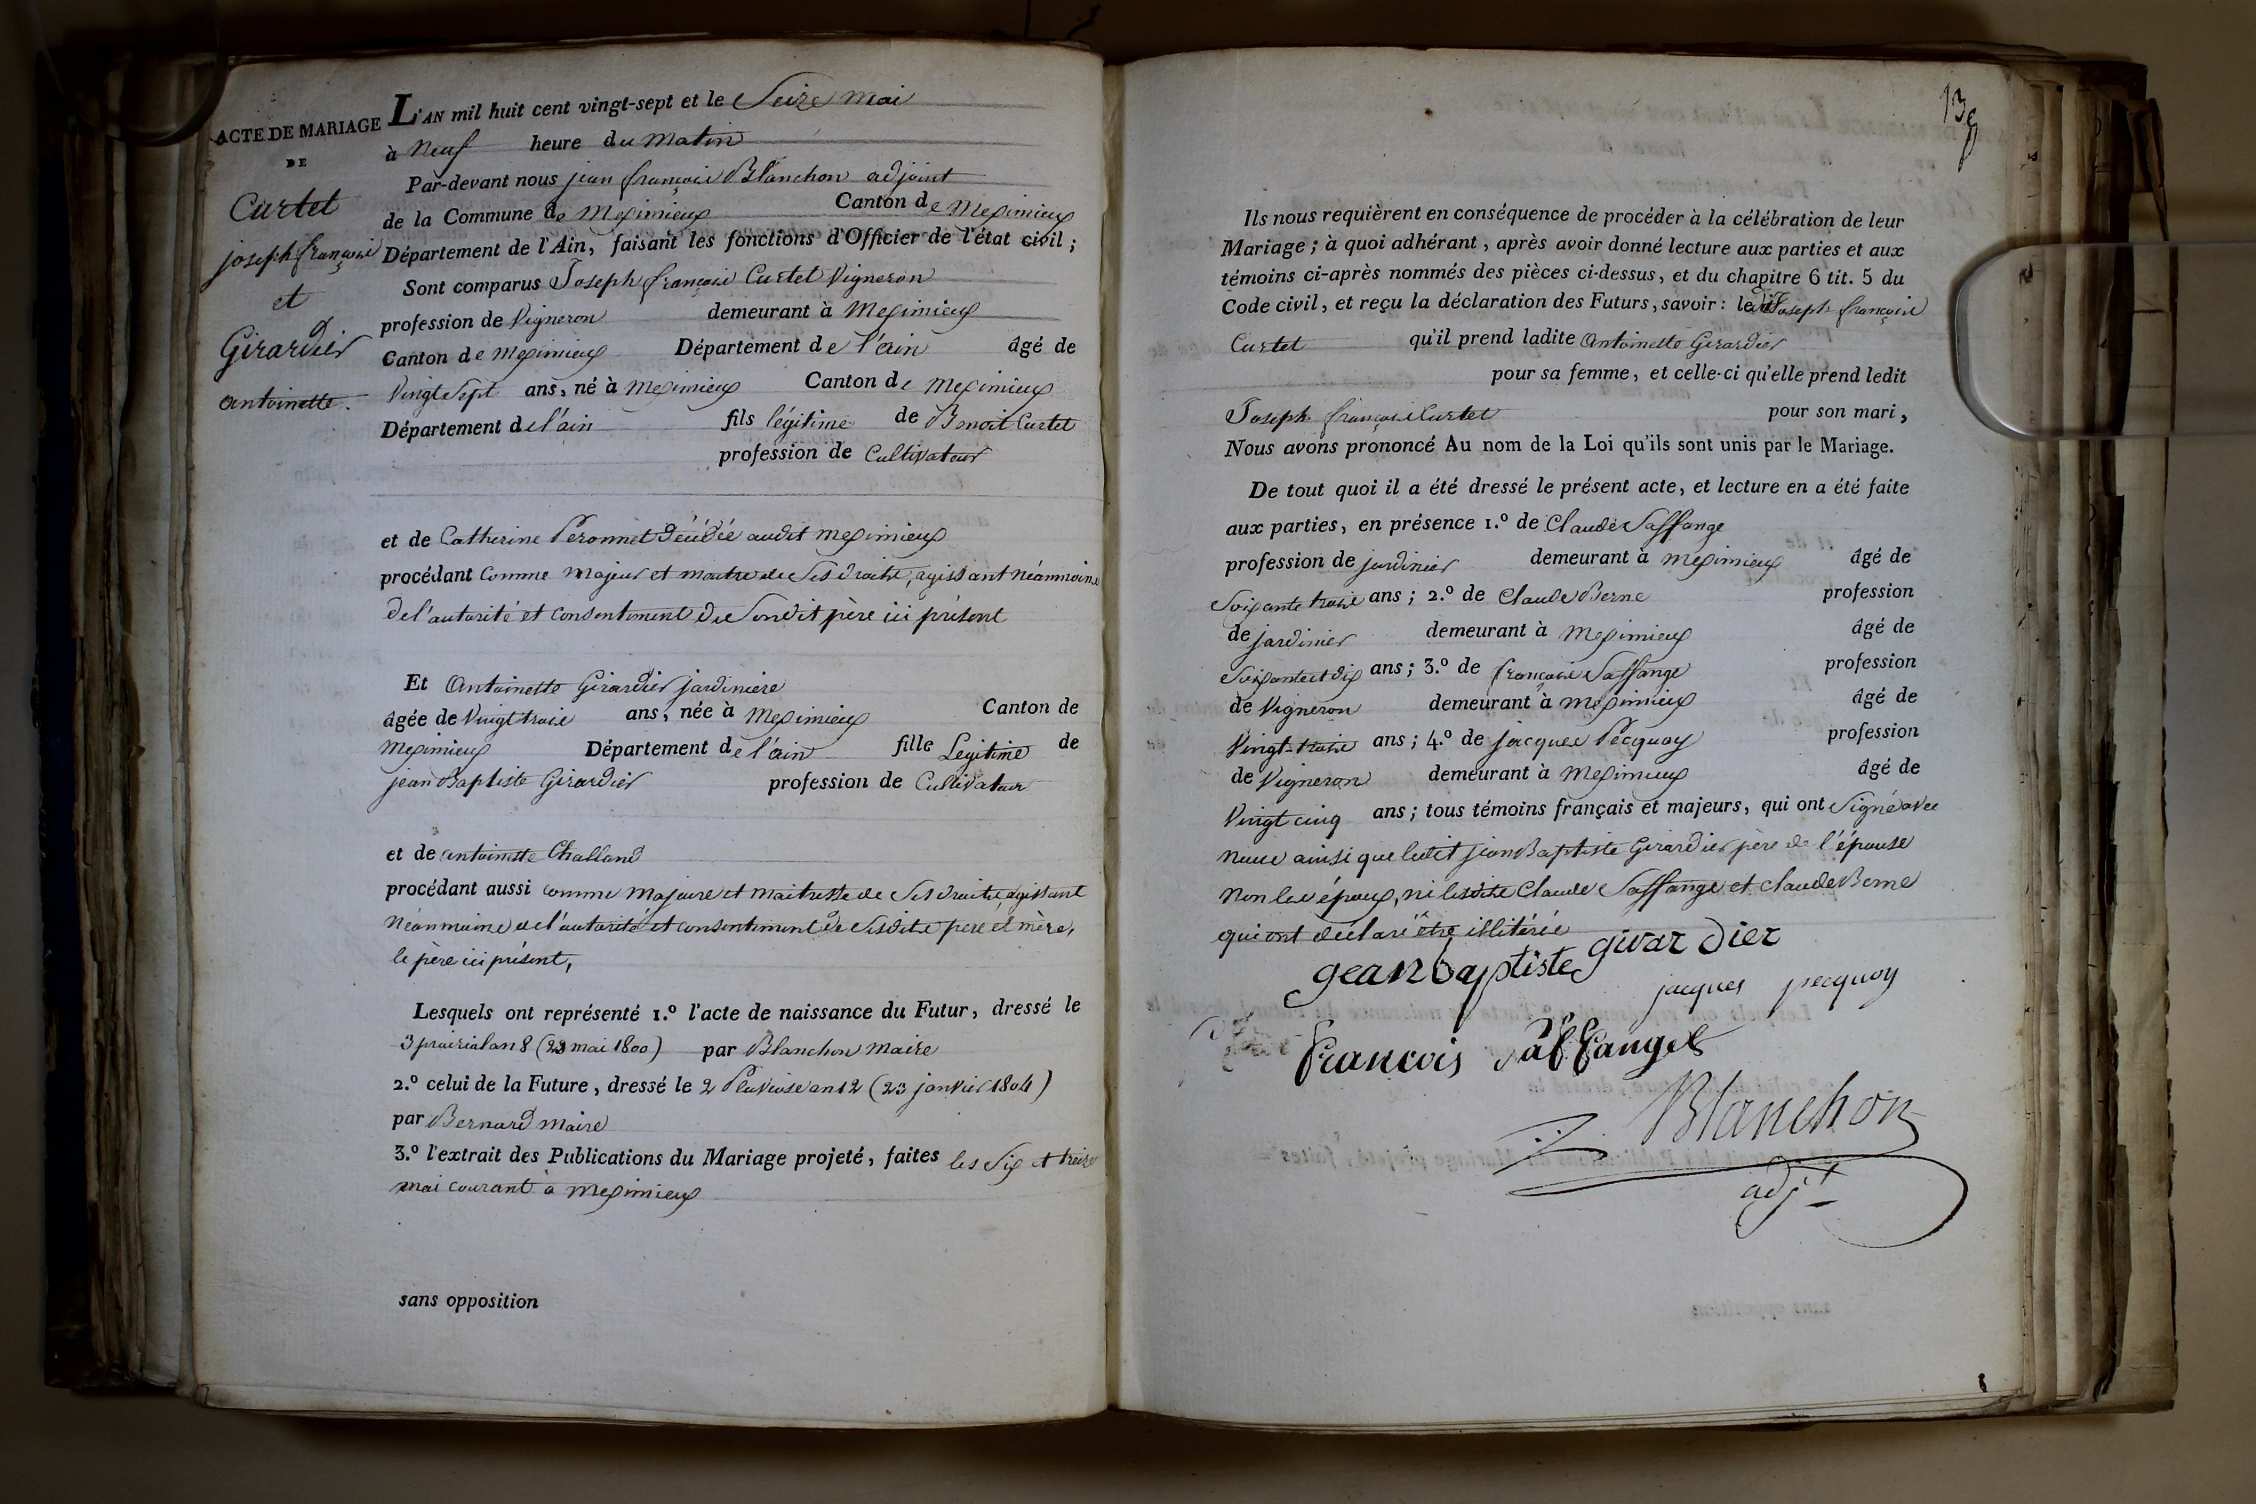 ACTE DE MARIAGE
DE
Curtet
joseph françois
et
Girardier
antoinette.
L'AN mil huit cent vingt-sept et le Seize mai
à Neuf heure du matin
Par-devant nous jean françois Blanchon adjoint
de la Commune de Meximieux Canton de Meximieux
Département de l'Ain, faisant les fonctions d'Officier de l'état civil;
Sont comparus Joseph françois Curtet Vigneron
profession de Vigneron demeurant à Meximieux
Canton de meximieux Département de l'ain âgé de
Vingt Sept ans, né à meximieux Canton de meximieux
Département de l'ain fils légitime de Benoit Curtet
profession de Cultivateur
et de Catherine Peronnet décédée audit meximieux
procédant comme majeur et maitre de Ses droits, agissant néanmoins
de l'autorité et consentement de Sondit père ici présent
Et Antoinette Girardier jardinière
âgée de Vingt trois ans, née à meximieux Canton de
meximieux Département de l'ain fille Légitime de
jean Baptiste Girardier profession de Cultivateur
et de antoinette Challand
procédant aussi comme majeure et maitresse de Ses droits agissant
néanmoins de l'autorité et consentement de Sesdits père et mère,
le père ici présent,
Lesquels ont représenté 1.º l'acte de naissance du Futur, dressé le
3 prairial an 8 (23 mai 1800) par Blanchon maire
2.º celui de la Future, dressé le 2 Pluviose an 12 (23 janvier 1804)
par Bernard maire
3.º l'extrait des Publications du Mariage projeté, faites les Six et treize
mai courant à meximieux
sans opposition
138
Ils nous requièrent en conséquence de procéder à la célébration de leur
Mariage; à quoi adhérant, après avoir donné lecture aux parties et aux
témoins ci-après nommés des pièces ci-dessus, et du chapitre 6 tit. 5 du
Code civil, et reçu la déclaration des Futurs, savoir: ledit Joseph françois
Curtet qu'il prend ladite Antoinette Girardier
pour sa femme, et celle-ci qu'elle prend ledit
Joseph françois Curtet pour son mari,
Nous avons prononcé Au nom de la Loi qu'ils sont unis par le Mariage.
De tout quoi il a été dressé le présent acte, et lecture en a été faite
aux parties, en présence 1.º de Claude Saffange
profession de jardinier demeurant à meximieux âgé de
Soixante trois ans; 2.º de Claude Berne profession
de jardinier demeurant à Meximieux âgé de
Soixante et dix ans; 3.º de françois Saffange profession
de Vigneron demeurant à meximieux âgé de
Vingt-trois ans; 4.º de jacques Pecquoy profession
de Vigneron demeurant à Meximieux âgé de
Vingt cinq ans; tous témoins français et majeurs, qui ont Signé avec
nous ainsi que ledit jean Baptiste Girardier père de l'épouse
non les époux, ni lesdits Claude Saffange et claude Berne
qui ont déclaré être illitérés
gean baptiste girardier
jacques pecquoy
francois saffange
Blanchon
adjt